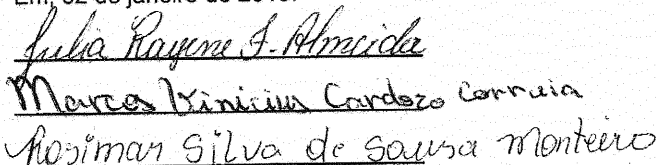 Em, 02 de janeiro de
Julia Rayene F. Almeida
Marcos Vinicius Cardozo Correia
Rosimar Silva de Sousa Monteiro